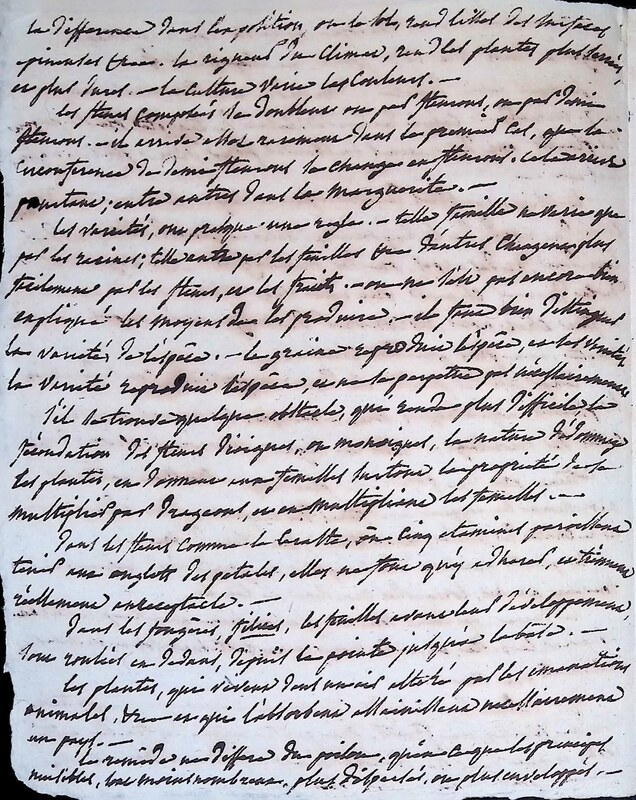 la difference dans l'exposition, ou le sol, rend lisses des surfaces
epineuses &ca. la rigueur du climat, rend les plantes plus serrées
et plus dures. — la culture varie les couleurs. —
les fleurs composées se doublent ou par fleurons, ou par demi
fleurons. — il arrive assez rarement dans le premier cas, que la
circonference de demi fleurons se change en fleurons. cela arrive
pourtant; entre autres dans la marguerite. —
les varietés, ont presque une regle. — telle famille ne varie que
par les racines; telle autre par les feuilles &ca d'autres changent plus
facilement par les fleurs, et les fruits. — on ne s'est pas encore bien
expliqué les moyens de les produire. — il faut bien distinguer
la varieté de l'espêce. — la graine reproduit l'espêce, et les varietés
la varieté reproduit l'espêce, et ne se perpetue pas nécessairement
s'il se trouve quelque obstacle, qui rende plus difficile, la
fécondation des fleurs dioiques, ou monoiques, la nature dédommage
les plantes, en donnant aux femelles surtout la proprieté de se
multiplier par drageons, et en multipliant les femelles. —
Dans les fleurs comme le ou cinq etamines paroissent
tenir aux onglets des petales, elles ne font qu'y adherer, et tiennent
réellement au receptacle. —
Dans les fougères, filices, les feuilles avant leur développement,
sont roulées en dedans, depuis la pointe jusqu'à la base. —
les plantes, qui vivent dans un air alteré par les emanations
animales, &ca et qui l'absorbent assainissent necessairement
un pays. —
le remède ne differe du poison, qu'en ce que les principes
nuisibles, sont moins nombreux, plus dispersés, ou plus enveloppés. —